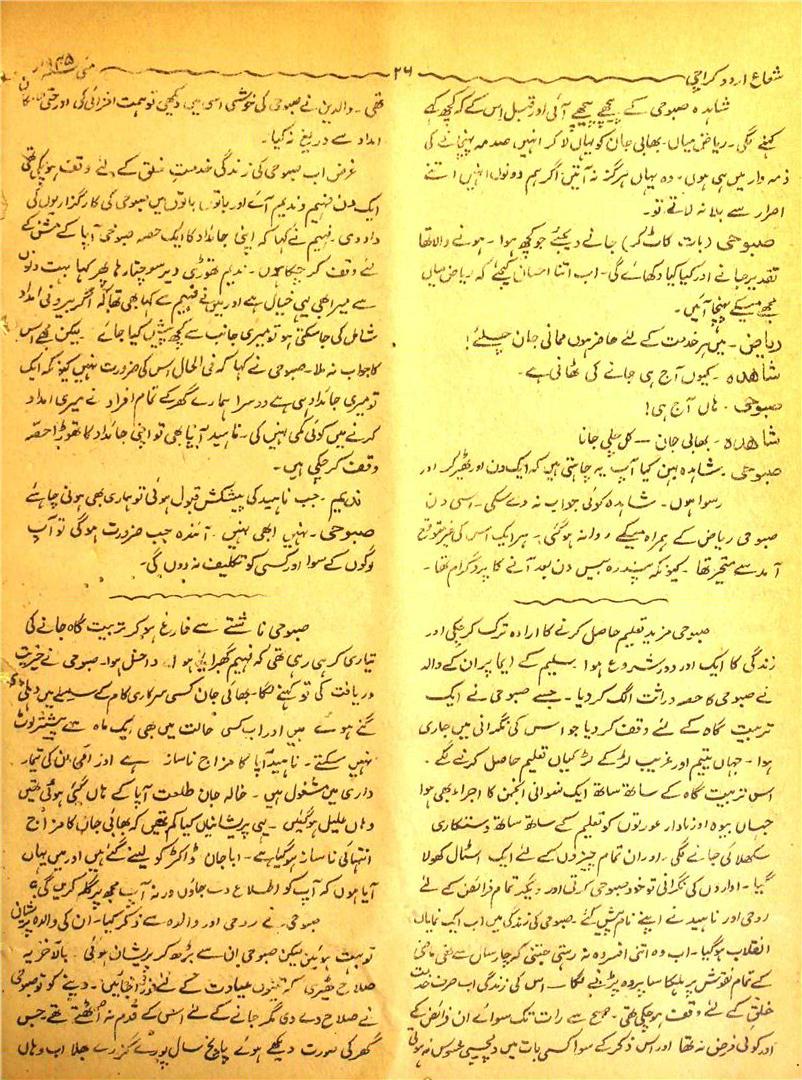 شعاع اردو کراچی
۲۶
مئی ۱۹۳۵ء
شاہدہ صبوحی کے پیچھے پیچھے آئی اور قبل اس کے کہ کچھ کہے
کہنے لگی۔ ریاض میاں۔ بھابی جان کو یہاں لا کر انہیں صدمہ پہنچانے کی
ذمہ دار میں ہی ہوں۔ وہ یہاں ہرگز نہ آتیں اگر ہم دونوں انہیں اتنے
اصرار سے بلا نہ لاتے تو۔
صبوحی (بات کاٹ کر) جانے دیجئے جو کچھ ہوا۔ ہونے والا تھا
تقدیر جانے اور کیا کیا دکھائے گی۔ اب اتنا احسان کیجئے کہ ریاض میاں
مجھے میکے پہنچا آئیں۔
ریاض۔ میں ہر خدمت کے لئے حاضر ہوں ممانی جان چلئے!
شاہدہ۔ کیوں آج ہی جانے کی ٹھانی ہے۔
صبوحی۔ ہاں آج ہی!
شاہدہ۔ بھابی جان — کل چلی جانا
صبوحی۔ شاہدہ بہن کیا آپ یہ چاہتی ہیں کہ ایک دن اور ٹھیر کر اور
رسوا ہوں۔ شاہدہ کوئی جواب نہ دے سکی۔ اسی دن
صبوحی ریاض کے ہمراہ میکے روانہ ہوگئی۔ ہر ایک اس کی غیر متوقع
آمد سے متحیر تھا۔ کیونکہ پندرہ بیس دن بعد آنے کا پروگرام تھا۔
صبوحی مزید تعلیم حاصل کرنے کا ارادہ ترک کر چکی اور
زندگی کا ایک اور دور شروع ہوا۔ سلیم کے ایما پر ان کے والد
نے صبوحی کا حصہ وراثت الگ کر دیا۔ جسے صبوحی نے ایک
تربیت گاہ کے لئے وقف کر دیا جو اس کی نگرانی میں جاری
ہوا۔ جہاں یتیم اور غریب لڑکے لڑکیاں تعلیم حاصل کرنے لگے۔
اس تربیت گاہ کے ساتھ ساتھ ایک نسوانی انجمن کا اجراء بھی ہوا
جہاں بیوہ اور نادار عورتوں کو تعلیم کے ساتھ ساتھ دستکاری
سکھلائی جانے لگی۔ اور ان تمام چیزوں کے لئے ایک اسٹال کھولا
گیا۔ اداروں کی نگرانی تو خود صبوحی کرتی اور دیگر تمام فرائض کے لئے
روحی اور ناہید نے اپنے نام پیش کئے۔ صبوحی کی زندگی میں اب ایک نمایاں
انقلاب ہو گیا۔ اب وہ اتنی افسردہ نہ رہتی جتنی کہ چار سال سے تھی ماضی
کے تمام نقوش پر ہلکا سا پردہ پڑنے لگا۔ اس کی زندگی اب صرف خدمت
خلق کے لئے وقف ہو چکی تھی۔ صبح سے رات تک سوائے ان فرائض کے
اور کوئی فرض نہ تھا اور اس ذکر کے سوا کسی بات میں دلچسپی محسوس نہ ہوتی
تھی۔ والدین نے صبوحی کی خوشی اسی میں دیکھی تو ہمت افزائی کی اور حتی الامکان
امداد سے دریغ نہ کیا۔
غرض اب صبوحی کی زندگی خدمت خلق کے لئے وقف ہو چکی تھی
ایک دن فہیم و ندیم آئے اور باتوں باتوں میں صبوحی کی کارگزاریوں کی
داد دی۔ فہیم نے کہا کہ اپنی جائداد کا ایک حصہ صبوحی آپا کے مشن کے
لئے وقف کر چکا ہوں۔ ندیم تھوڑی دیر سوچتا رہا پھر کہا بہت دنوں
سے میرا بھی یہی خیال ہے اور میں نے فہیم سے کہا بھی تھا کہ اگر بیرونی امداد
شامل کی جا سکتی ہو تو میری جانب سے کچھ پیش کیا جائے لیکن مجھے اس
کا جواب نہ ملا۔ صبوحی نے کہا کہ فی الحال اس کی ضرورت نہیں کیونکہ ایک
تو میری جائداد ہی ہے دوسرا ہمارے گھر کے تمام افراد نے میری امداد
کرنے میں کوئی کمی نہیں کی۔ ناہید آپا بھی تو اپنی جائداد کا تھوڑا حصہ
وقف کر چکی ہیں۔
ندیم۔ جب ناہید کی پیشکش قبول ہوئی تو ہماری بھی ہونی چاہئے
صبوحی۔ نہیں ابھی نہیں۔ آئندہ جب ضرورت ہو گی تو آپ
لوگوں کے سوا اور کسی کو تکلیف نہ دوں گی۔
صبوحی ناشتے سے فارغ ہو کر تربیت گاہ جانے کی
تیاری کر ہی رہی تھی کہ فہیم گھبرایا ہوا داخل ہوا۔ صبوحی نے خیریت
دریافت کی تو کہنے لگا۔ بھائی جان کسی سرکاری کام کے سلسلے میں دہلی
گئے ہوئے ہیں اور اب کسی حالت میں بھی ایک ماہ سے پیشتر لوٹ
نہیں سکتے۔ ناہید آپا کا مزاج ناساز ہے اور امی ان کی تیمار
داری میں مشغول ہیں۔ خالہ جان طلعت آپا کے ہاں گئی ہوئی تھیں
وہاں علیل ہو گئیں۔ یہی پریشانیاں کیا کم تھیں کہ بھابی جان کا مزاج
انتہائی ناساز ہو گیا ہے۔ ابا جان ڈاکٹر کو لینے گئے ہیں اور میں یہاں
آیا ہوں کہ آپ کو اطلاع دے جاؤں ورنہ آپ مجھ پر گلہ کریں گی۔
صبوحی نے روحی اور والدہ سے ذکر کیا۔ ان کی والدہ پریشان
تو بہت ہوئیں لیکن صبوحی ان سے بڑھ کر پریشان ہوئی۔ بالآخر یہ
صلاح ٹھیری کہ تینوں عیادت کے لئے فوراً جائیں۔ دینے کو تو صبوحی
نے صلاح دے دی مگر جانے کے لئے اس کے قدم نہ اٹھتے تھے۔ جس
گھر کی صورت دیکھے ہوئے پانچ سال پورے گزرے جلا اب وہاں